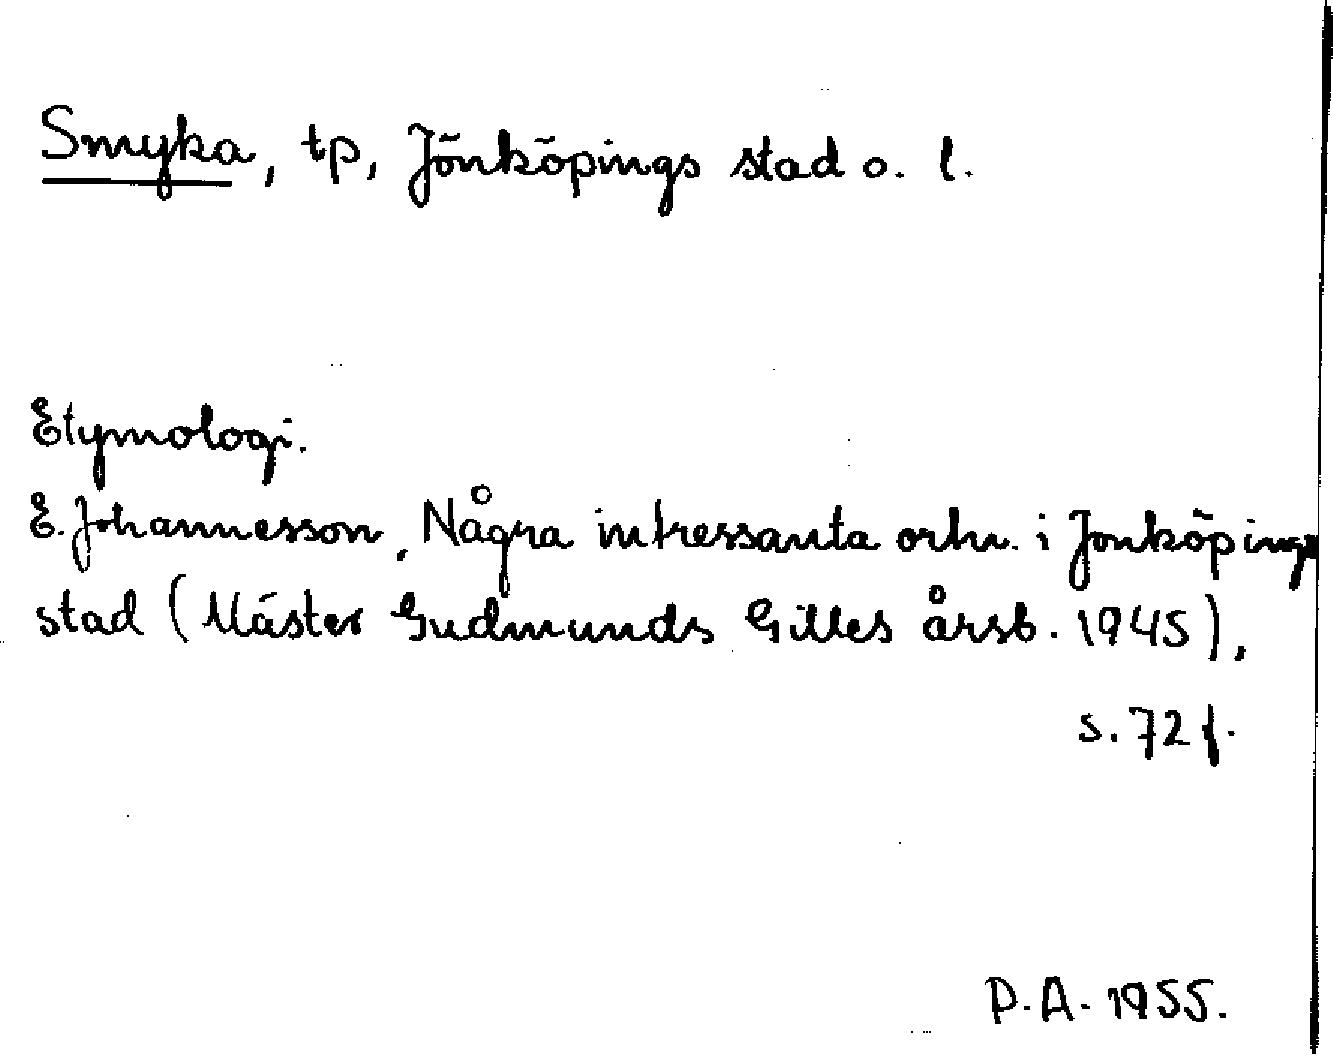 Smyka, tp, Jönköpings stad o. l.
Etymologi.
E. Johannesson, Några intressanta ortn. i Jönköpings
stad (Mäster Gudmunds Gilles årsb. 1945),
s. 72 f.
P. A. 1955.